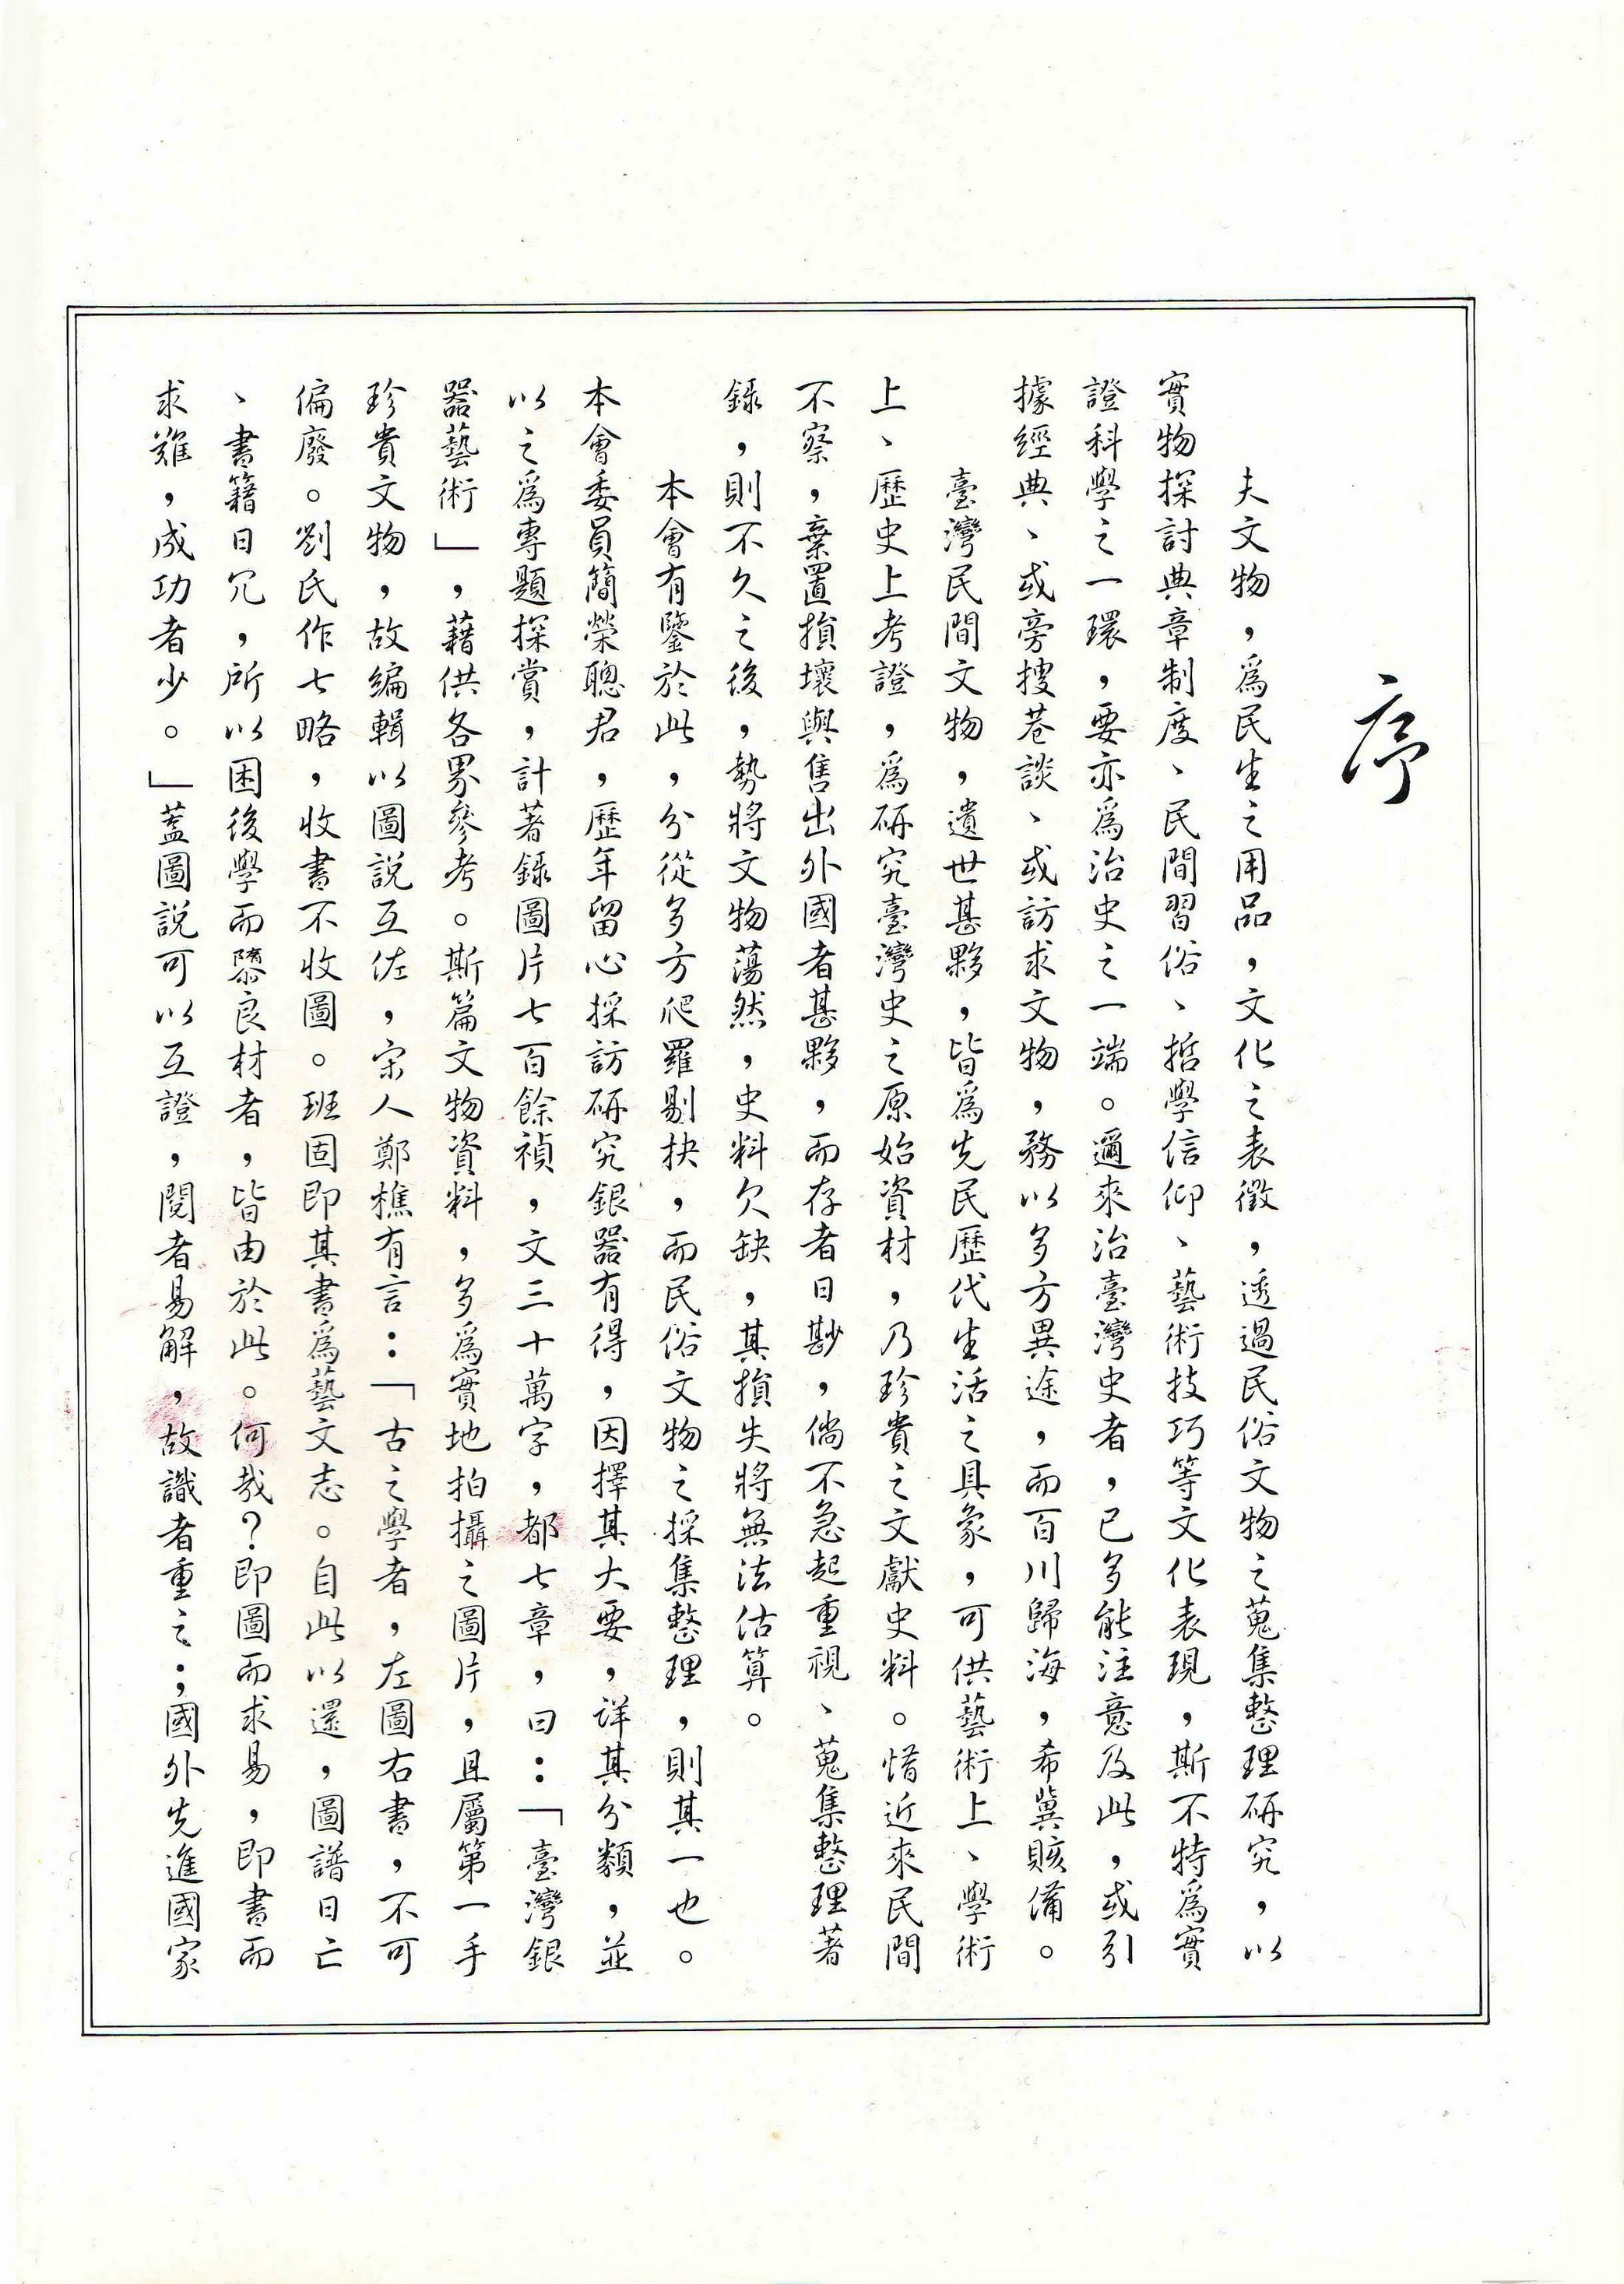 序
夫文物，為民生之用品，文化之表徵，透過民俗文物之蒐集整理研究，以
實物探討典章制度、民間習俗、哲學信仰、藝術技巧等文化表現，斯不特為實
證科學之一環，要亦為治史之一端。邇來治臺灣史者，已多能注意及此，或引
據經典、或旁搜巷談、或訪求文物，務以多方異途，而百川歸海，希冀賅備。
臺灣民間文物，遺世甚夥，皆為先民歷代生活之具象，可供藝術上、學術
上、歷史上考證，為研究臺灣史之原始資材，乃珍貴之文獻史料。惜近來民間
不察，棄置損壞與售出外國者甚夥，而存者日尠，倘不急起重視、蒐集整理著
錄，則不久之後，勢將文物蕩然，史料欠缺，其損失將無法估算。
本會有鑒於此，分從多方爬羅剔抉，而民俗文物之採集整理，則其一也。
本會委員簡榮聰君，歷年留心採訪研究銀器有得，因擇其大要，详其分類，並
以之為專題探賞，計著錄圖片七百餘禎，文三十萬字，都七章，曰：「臺灣銀
器藝術」，藉供各界參考。斯篇文物資料，多為實地拍攝之圖片，且屬第一手
珍貴文物，故編輯以圖說互佐，宋人鄭樵有言：「古之學者，左圖右書，不可
偏廢。劉氏作七略，收書不收圖。班固即其書為藝文志。自此以還，圖譜日亡
、書籍日冗，所以困後學而隳良材者，皆由於此。何哉？即圖而求易，即書而
求難，成功者少。」蓋圖說可以互證，閱者易解，故識者重之；國外先進國家